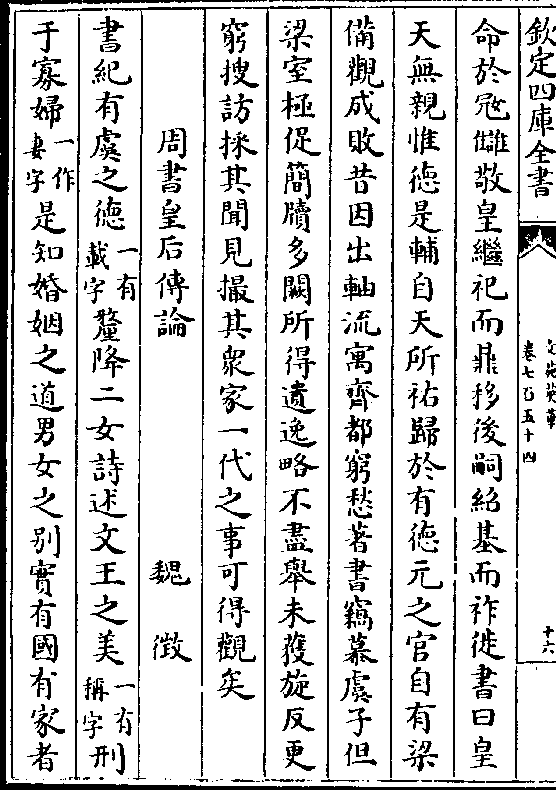 欽定四庫全書
文苑英華
卷七百五十四
十六
命於冦讎敬皇繼祀而鼎移後嗣紹基而祚徙書曰皇
天無親惟德是輔自天所祐歸於有德元之官自有梁
備觀成敗昔因出軸流寓齊都窮愁著書竊慕虞子但
梁室極促簡牘多闕所得遺逸略不盡舉未獲旋反更
窮搜訪採其聞見撮其衆家一代之事可得觀矣
周書皇后傳論 魏徵
書紀有虞之德一有載字釐降二女詩述文王之美一有稱字刑
于寡婦一作妻字是知婚姻之道男女之别實有國有家者